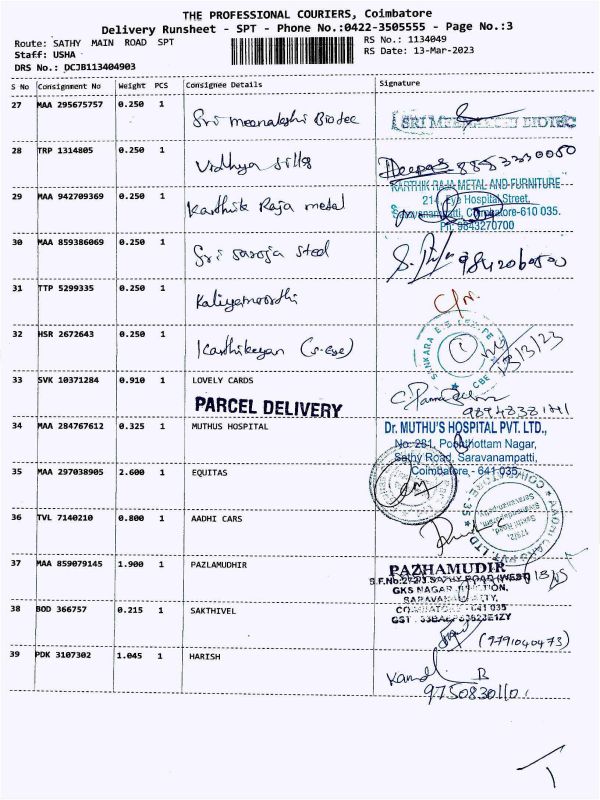 THE PROFESSIONAL COURIERS, Coimbatore
Delivery Runsheet - SPT - Phone No.:0422-3505555 - Page No.:3
Route: SATHY MAIN ROAD SPT
RS No.: 1134049
Staff: USHA
RS Date: 13-Mar-2023
DRS No.: DCJB113404903
S No Consignment No Weight PCS Consignee Details Signature
27 MAA 295675757 0.250 1 Sri meenakshi Biotec
28 TRP 1314805 0.250 1 Vidhya silks Deepa
29 MAA 942709369 0.250 1 Karthik Raja metal KARTHIK RAJA METAL AND FURNITURE
214, Eye Hospital Street,
Saravanampatti, Coimbatore-610 035.
Ph: 9843270700
30 MAA 859386069 0.250 1 Sri saroja steel
31 TTP 5299335 0.250 1 Kaliyamoorthi
32 HSR 2672643 0.250 1 Karthikeyan (s-eye) 13/3/23
33 SVK 10371284 0.910 1 LOVELY CARDS
PARCEL DELIVERY
34 MAA 284767612 0.325 1 MUTHUS HOSPITAL Dr. MUTHU'S HOSPITAL PVT. LTD.,
No: 281, Poonthottam Nagar,
Sathy Road, Saravanampatti,
Coimbatore - 641 035.
35 MAA 297038905 2.600 1 EQUITAS
36 TVL 7140210 0.800 1 AADHI CARS AADHI CARS PVT. LTD COIMBATORE-35
37 MAA 859079145 1.900 1 PAZLAMUDHIR PAZHAMUDIR
S.F.No:272/3 SATHY ROAD (WEST)
GKS NAGAR JUNCTION,
COIMBATORE - 641 035
38 BOD 366757 0.215 1 SAKTHIVEL (9791040473)
39 PDK 3107302 1.045 1 HARISH